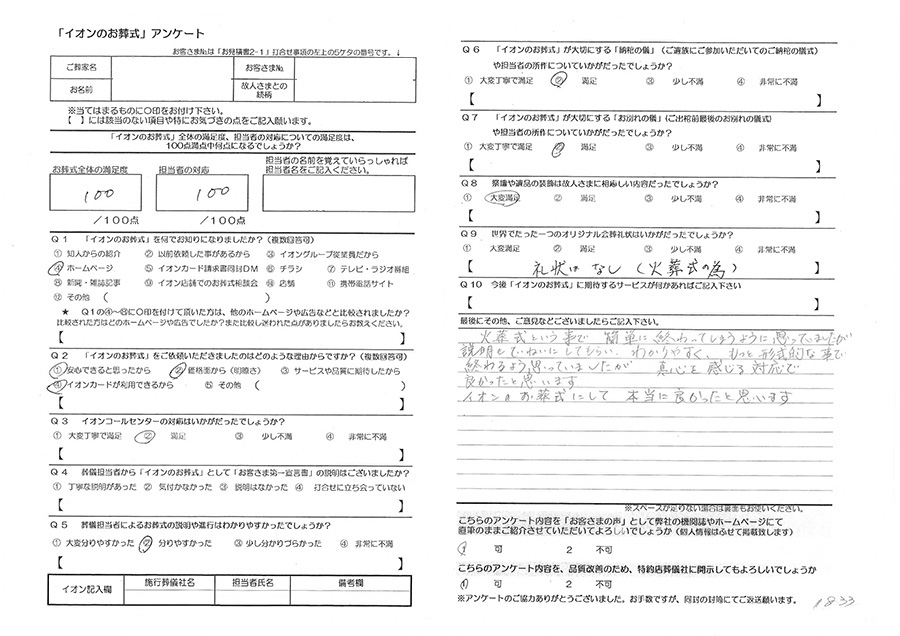 「イオンのお葬式」アンケート
お客さま№は「お見積書2-1」打合せ事項の左上の5ケタの番号です。↓
ご葬家名 お客さま№
お名前 故人さまとの続柄
※当てはまるものに〇印をお付け下さい。
【 】には該当のない項目や特にお気づきの点をご記入願います。
「イオンのお葬式」全体の満足度、担当者の対応についての満足度は、
100点満点中何点になるでしょうか?
お葬式全体の満足度 担当者の対応 担当者の名前を覚えていらっしゃれば
担当者名をご記入ください。
100 100
/100点 /100点
Q1 「イオンのお葬式」を何でお知りになりましたか?(複数回答可)
① 知人からの紹介 ② 以前依頼した事があるから ③ イオングループ従業員だから
④ ホームページ ⑤ イオンカード請求書同封DM ⑥ チラシ ⑦ テレビ・ラジオ番組
⑧ 新聞・雑誌記事 ⑨ イオン店舗でのお葬式相談会 ⑩ 店舗 ⑪ 携帯電話サイト
⑫ その他 ( )
★ Q1の④~⑪に〇印を付けて頂いた方は、他のホームページや広告などと比較されましたか?
比較された方はどのホームページや広告でしたか?また比較し迷われた点がありましたらお教えください。
【 】
Q2 「イオンのお葬式」をご依頼いただきましたのはどのような理由からですか?(複数回答可)
① 安心できると思ったから ② 価格面から(明瞭さ) ③ サービスや品質に期待したから
④ イオンカードが利用できるから ⑤ その他 ( )
【 】
Q3 イオンコールセンターの対応はいかがだったでしょうか?
① 大変丁寧で満足 ② 満足 ③ 少し不満 ④ 非常に不満
【 】
Q4 葬儀担当者から「イオンのお葬式」として「お客さま第一宣言書」の説明はございましたか?
① 丁寧な説明があった ② 気付かなかった ③ 説明はなかった ④ 打合せに立ち会っていない
【 】
Q5 葬儀担当者によるお葬式の説明や進行はわかりやすかったでしょうか?
① 大変分りやすかった ② 分りやすかった ③ 少し分かりづらかった ④ 非常に不満
【 】
イオン記入欄 施行葬儀社名 担当者氏名 備考欄
Q6 「イオンのお葬式」が大切にする「納棺の儀」(ご遺族にご参加いただいてのご納棺の儀式)
や担当者の所作についていかがだったでしょうか?
① 大変丁寧で満足 ② 満足 ③ 少し不満 ④ 非常に不満
【 】
Q7 「イオンのお葬式」が大切にする「お別れの儀」(ご出棺前最後のお別れの儀式)
や担当者の所作についていかがだったでしょうか?
① 大変丁寧で満足 ② 満足 ③ 少し不満 ④ 非常に不満
【 】
Q8 祭壇や遺品の装飾は故人さまに相応しい内容だったでしょうか?
① 大変満足 ② 満足 ③ 少し不満 ④ 非常に不満
【 】
Q9 世界でたった一つのオリジナル会葬礼状はいかがだったでしょうか?
① 大変満足 ② 満足 ③ 少し不満 ④ 非常に不満
【 礼状は なし(火葬式の為) 】
Q10 今後「イオンのお葬式」に期待するサービスが何かあればご記入下さい
【 】
最後にその他、ご意見などございましたらご記入下さい。
火葬式という事で 簡単に終わってしまうように思っていましたが
説明もていねいにしてもらい、わかりやすく、もっと形式的な事で
終わるよう思っていましたが 真心を感じる対応で
良かったと思います
イオンのお葬式にして 本当に良かったと思います
※スペースが足りない場合は裏面もお使いください。
こちらのアンケート内容を「お客さまの声」として弊社の機関誌やホームページにて
直筆のままご紹介させていただいてよろしいでしょうか(個人情報はふせて掲載致します)
1 可 2 不可
こちらのアンケート内容を、品質改善のため、特約店葬儀社に開示してもよろしいでしょうか
1 可 2 不可
※アンケートのご協力ありがとうございました。お手数ですが、同封の封筒にてご返送願います。
1833